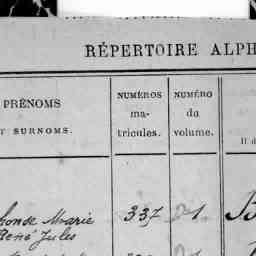 RÉPERTOIRE ALPH
PRÉNOMS
T SURNOMS.
NUMÉROS
ma-
tricules.
NUMÉRO
du
volume.
Il d
honse Marie 337 21 B
René Jules